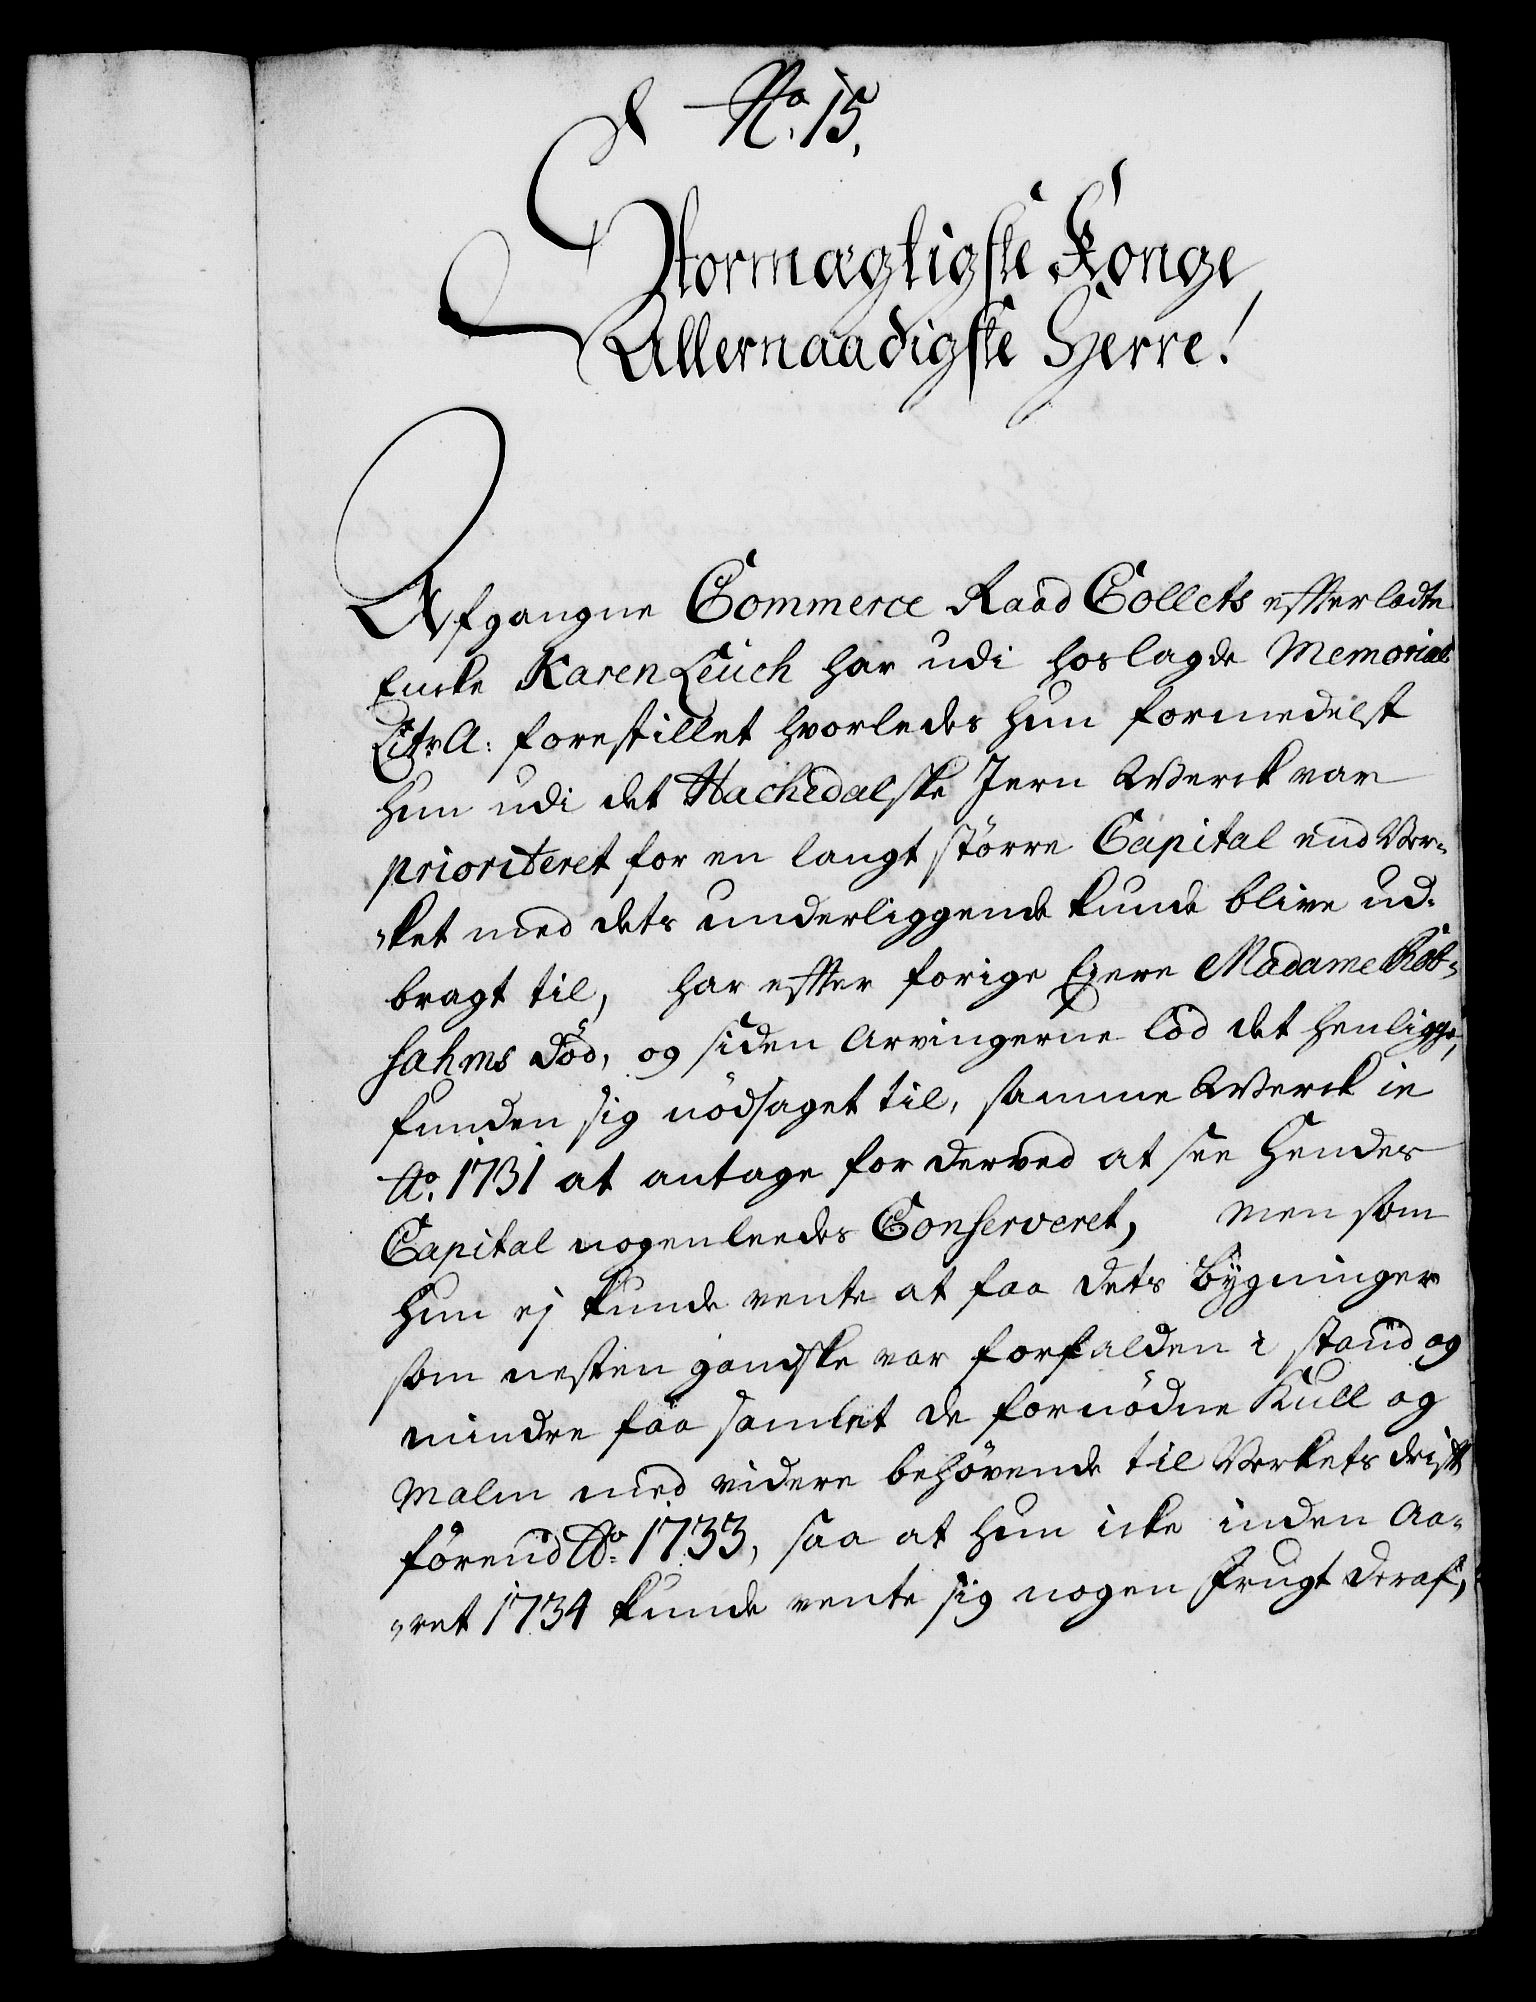 No. 15.
Stormægtigste Konge
Allernaadigste Herre!
Afgangne Commerce Raad Collets efterladte
Encke Karen Leuch har udi hoslagde Memorial
Litr A: forestillet hvorledes hun formedelst
hun udi det Hachedalske Jern Werck var
prioriteret for en langt större Capital end Ver-
-ket med dets underliggende kunde blive ud-
bragt til, har efter forige Eyere Madame
sahms död, og siden Arvingerne lod det henligge,
funden sig nödsaget til, samme Werck in
Ao. 1731 at antage for derved at see Hendes
Capital nogenleedes Conserveret, men som
hun ej kunde vente at faa dets Bygninger
som nesten gandske var forfalden i stand og
mindre faa samlet de fornödne Kull og
Malm med videre behövende til Verkets drift
förend Ao. 1733, saa at hun icke inden Aa-
-ret 1734 kunde vente sig nogen Frugt deraf,